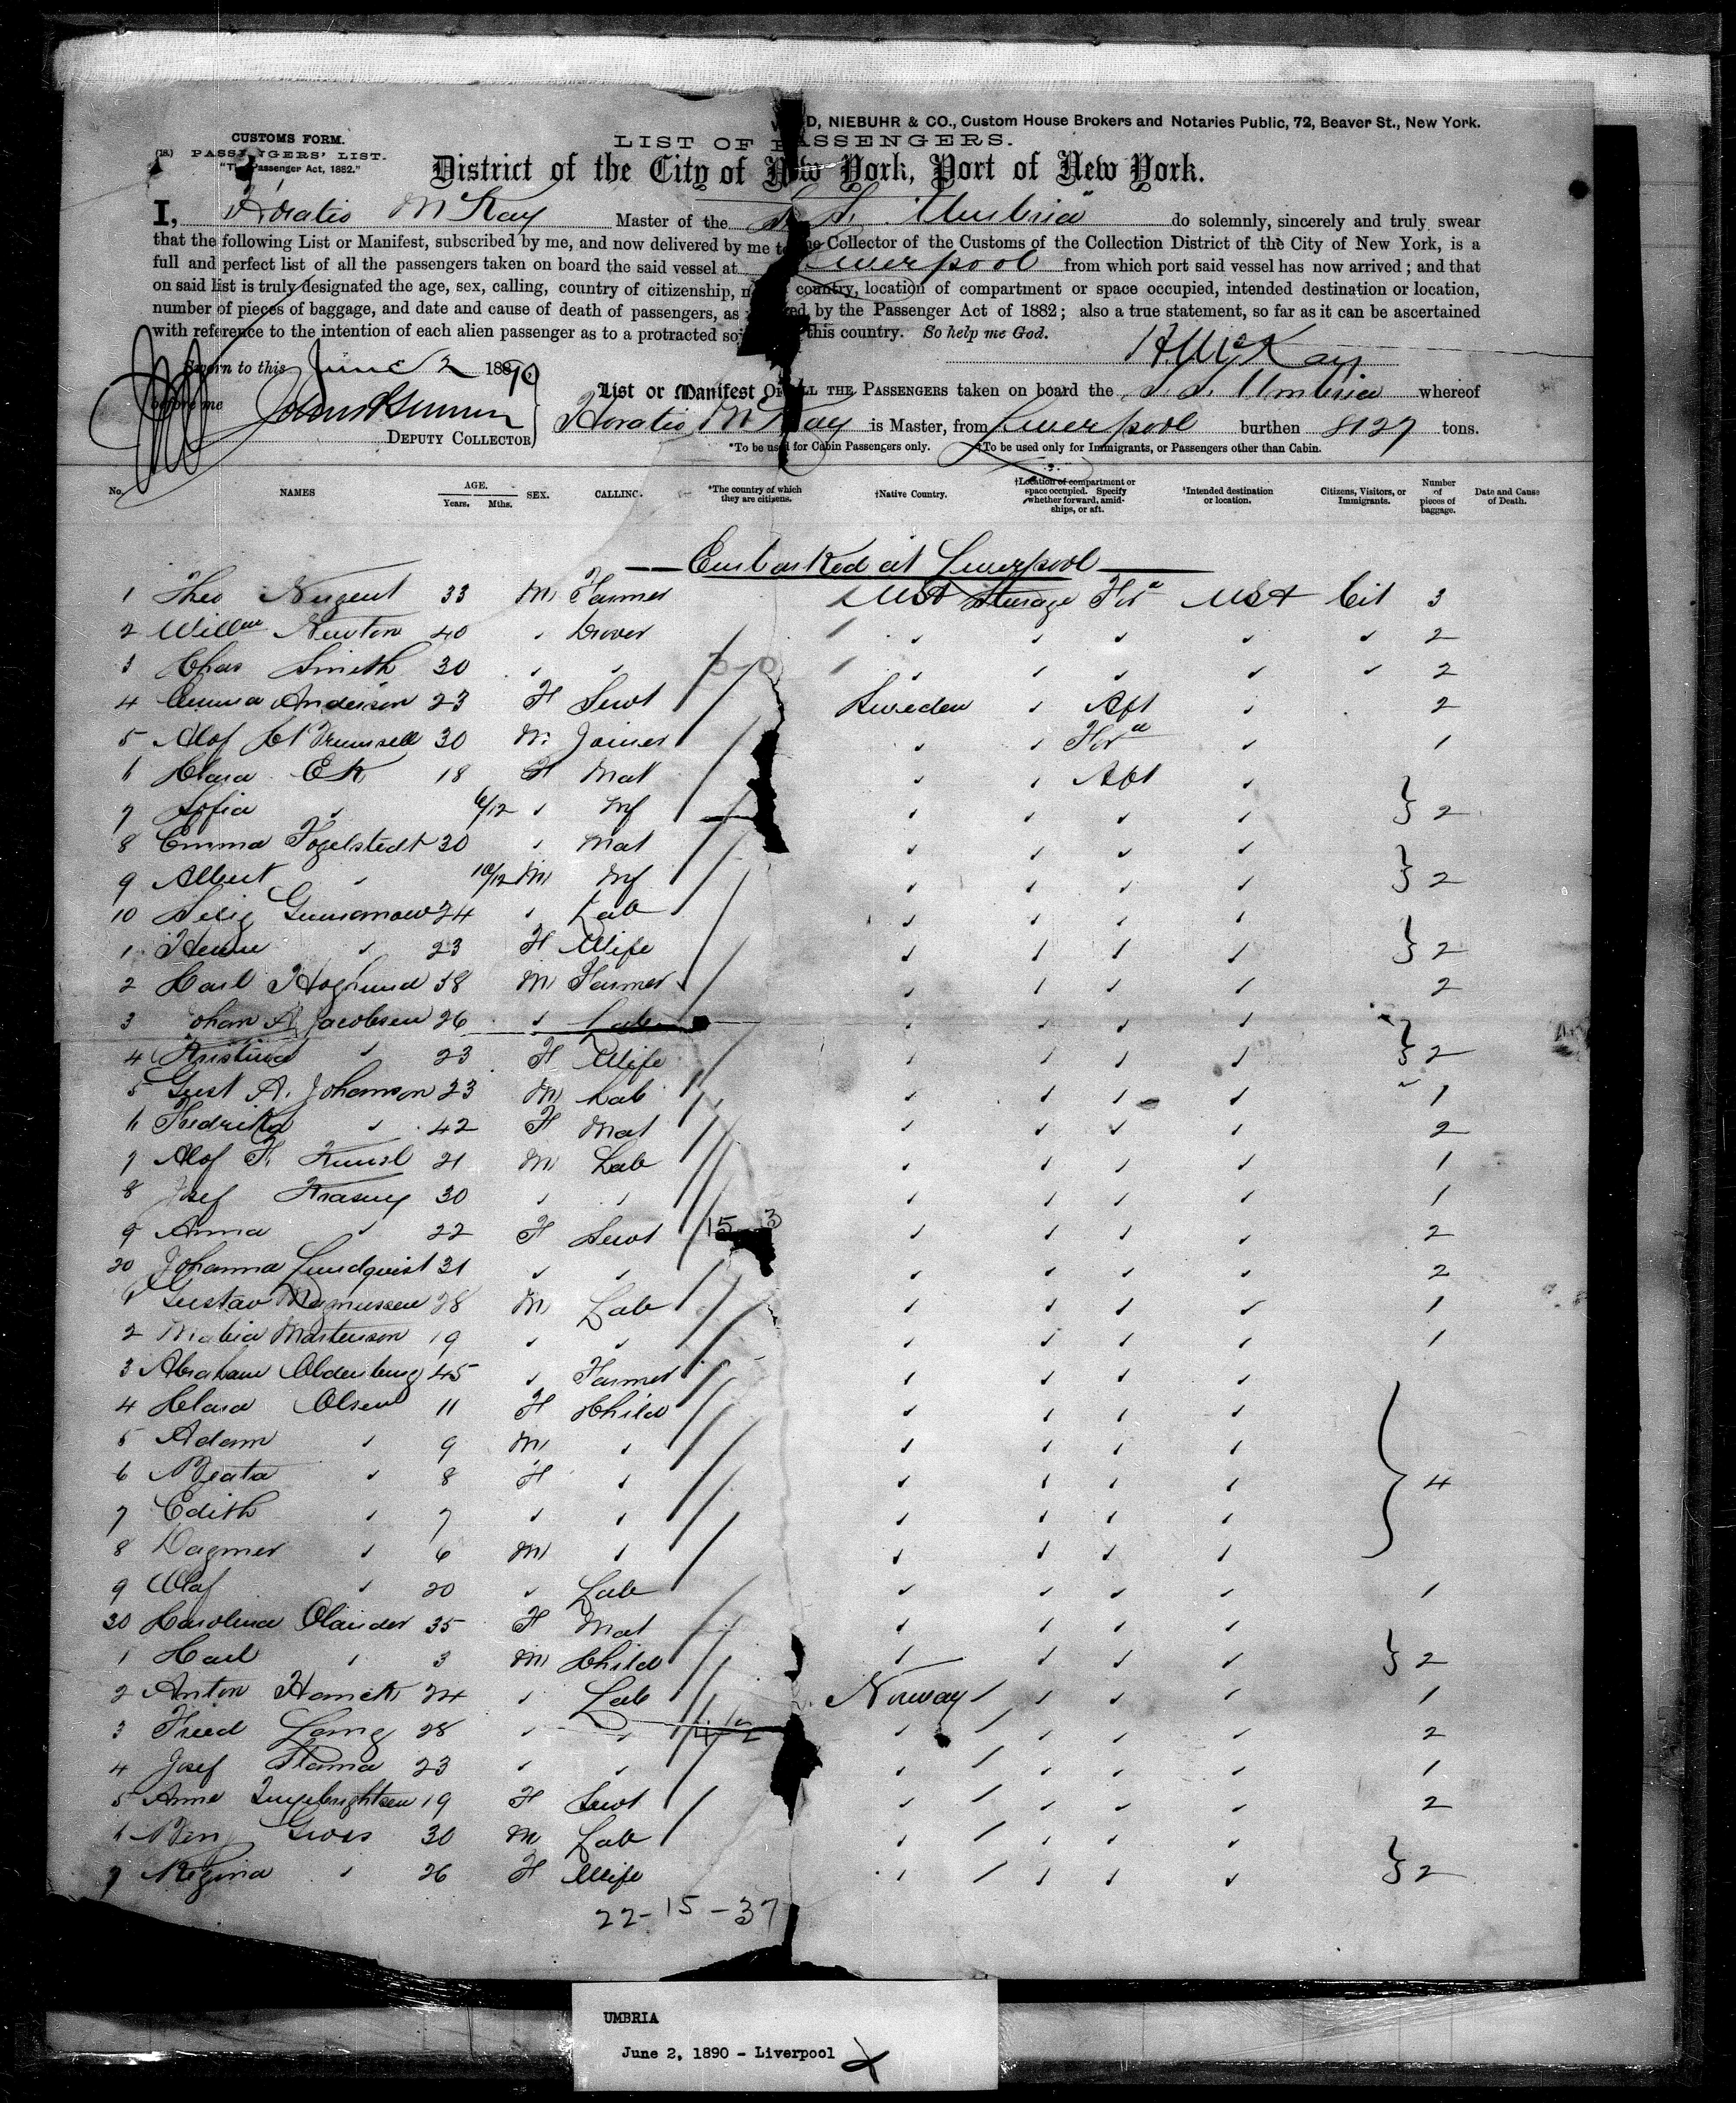 D, NIEBUHR & CO., Custom House Brokers and Notaries Public, 72, Beaver St., New York.
CUSTOMS FORM.
LIST OF PASSENGERS.
(18.) PASSENGERS' LIST.
"The Passenger Act, 1882."
District of the City of New York, Port of New York.
I, Horatio McKay Master of the S. S. Umbria do solemnly, sincerely and truly swear
that the following List or Manifest, subscribed by me, and now delivered by me to the Collector of the Customs of the Collection District of the City of New York, is a
full and perfect list of all the passengers taken on board the said vessel at Liverpool from which port said vessel has now arrived; and that
on said list is truly designated the age, sex, calling, country of citizenship, country, location of compartment or space occupied, intended destination or location,
number of pieces of baggage, and date and cause of death of passengers, as by the Passenger Act of 1882; also a true statement, so far as it can be ascertained
with reference to the intention of each alien passenger as to a protracted this country. So help me God.
H McKay
Sworn to this June 2 1890
before me
List or Manifest OF ALL THE PASSENGERS taken on board the S. S. Umbria whereof
DEPUTY COLLECTOR
Horatio McKay is Master, from Liverpool burthen 8127 tons.
*To be used for Cabin Passengers only. †To be used only for Immigrants, or Passengers other than Cabin.
No. NAMES AGE. Years. Mths. SEX. CALLING. *The country of which they are citizens. †Native Country. †Location of compartment or space occupied. Specify whether forward, amidships, or aft. *Intended destination or location. Citizens, Visitors, or Immigrants. Number of pieces of baggage. Date and Cause of Death.
Embarked at Liverpool
1 Theo Nugent 33 M Farmer USA Steerage For'd USA Cit 3
2 Willm Newton 40 Drover 2
3 Chas Smith 30 2
4 Emma Anderson 23 F Servt Sweden Aft 2
5 Alof 30 M Joiner For'd 1
6 Clara Ek 18 F Mat Aft
7 Sofia 6/12 Inf 2
8 Emma Fogelstedt 30 Mat
9 Albert 10/12 M Inf 2
10 Selig 24 Lab
1 23 F Wife 2
2 Carl Hoglund 38 M Farmer 2
3 Johan A Jacobsen 26 Lab
4 Kristina 23 F Wife 2
5 Gust A. Johanson 23 M Lab 1
6 Fredrika 42 F Mat 2
7 Alof F. 21 M Lab 1
8 Josef Krasny 30 1
9 Anna 22 F Servt 15 3 2
20 Johanna Lundqvist 31 2
1 Gustav Magnussen 28 M Lab 1
2 Martenson 19 1
3 Abraham Oldenburg 45 Farmer
4 Clara Olsen 11 F Child
5 Adam 9 M
6 Beata 8 F 4
7 Edith 7
8 Dagmer 6 M
9 Olaf 20 Lab 1
30 Carolina Olander 35 F Mat
1 Carl 3 M Child 2
2 Anton 24 Lab Norway 1
3 Fred Lang 28 2
4 Josef Slama 23 1
5 Anne Ingebrightsen 19 F Servt 2
6 Ben Gross 30 M Lab
7 Regina 26 F Wife 2
22-15-37
UMBRIA
June 2, 1890 - Liverpool